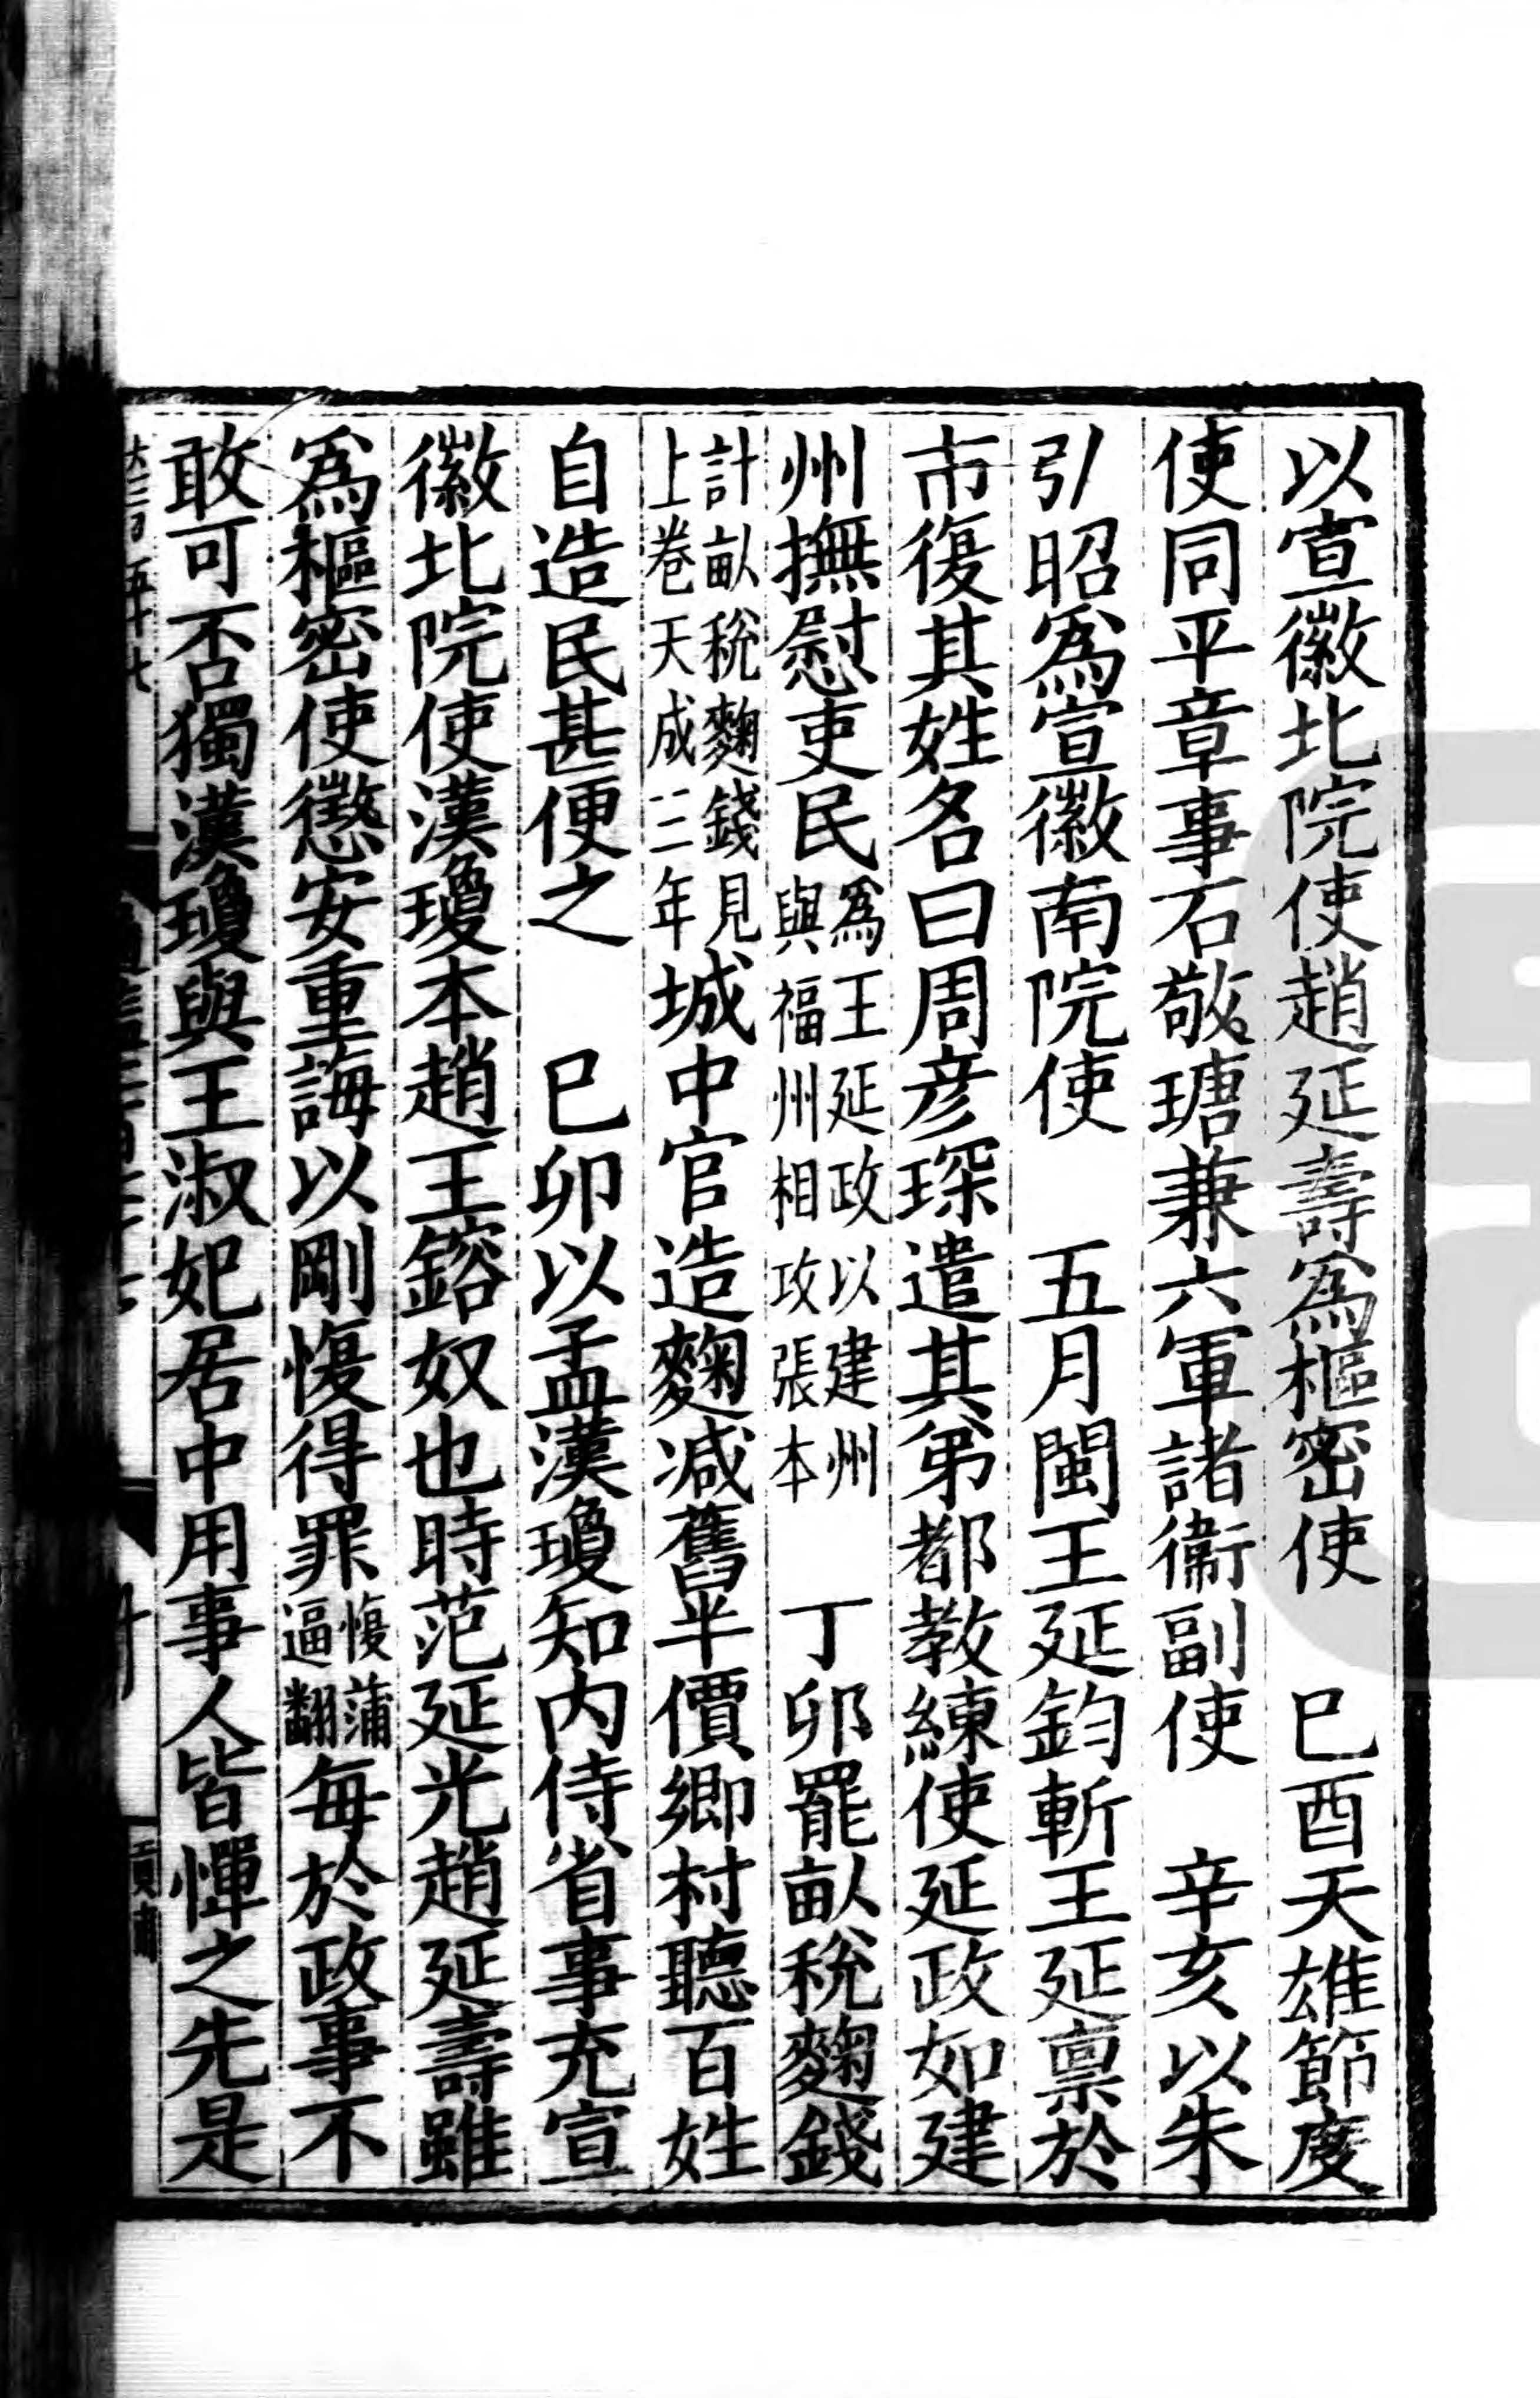 以宣徽北院使趙延壽爲樞密使　己酉天雄節度
使同平章事石敬瑭兼六軍諸衞副使　辛亥以朱
引昭爲宣徽南院使　五月閩王延鈞斬王延禀於
市復其姓名曰周彦琛遣其弟都教練使延政如建
州撫慰吏民爲王延政以建州與福州相攻張本　丁卯罷畝税麴錢
計畝税麴錢見上卷天成三年城中官造麴減舊半價鄉村聽百姓
自造民甚便之　己卯以孟漢瓊知内侍省事充宣
徽北院使漢瓊本趙王鎔奴也時范延光趙延壽雖
爲樞密使懲安重誨以剛愎得罪愎蒲逼翻每於政事不
敢可否獨漢瓊與王淑妃居中用事人皆憚之先是